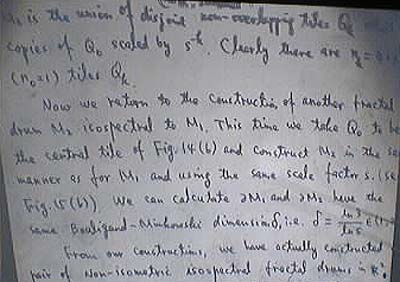 M₁ is the union of disjoint non-overlapping tiles Qₖ
copies of Q₀ scaled by s⁻ᵏ. Clearly there are nₖ =
(n₀=1) tiles Qₖ.
Now we return to the construction of another fractal
drum M₂ isospectral to M₁. This time we take Q₀ to be
the central tile of Fig. 14(b) and construct M₂ in the same
manner as for M₁ and using the same scale factor s. (see
Fig. 15(b)). We can calculate ∂M₁ and ∂M₂ have the
same Bouligand-Minkowski dimension δ, i.e. δ = ln3/ln5 ∈ (1,
From our construction, we have actually constructed
pair of non-isometric isospectral fractal drums in R².